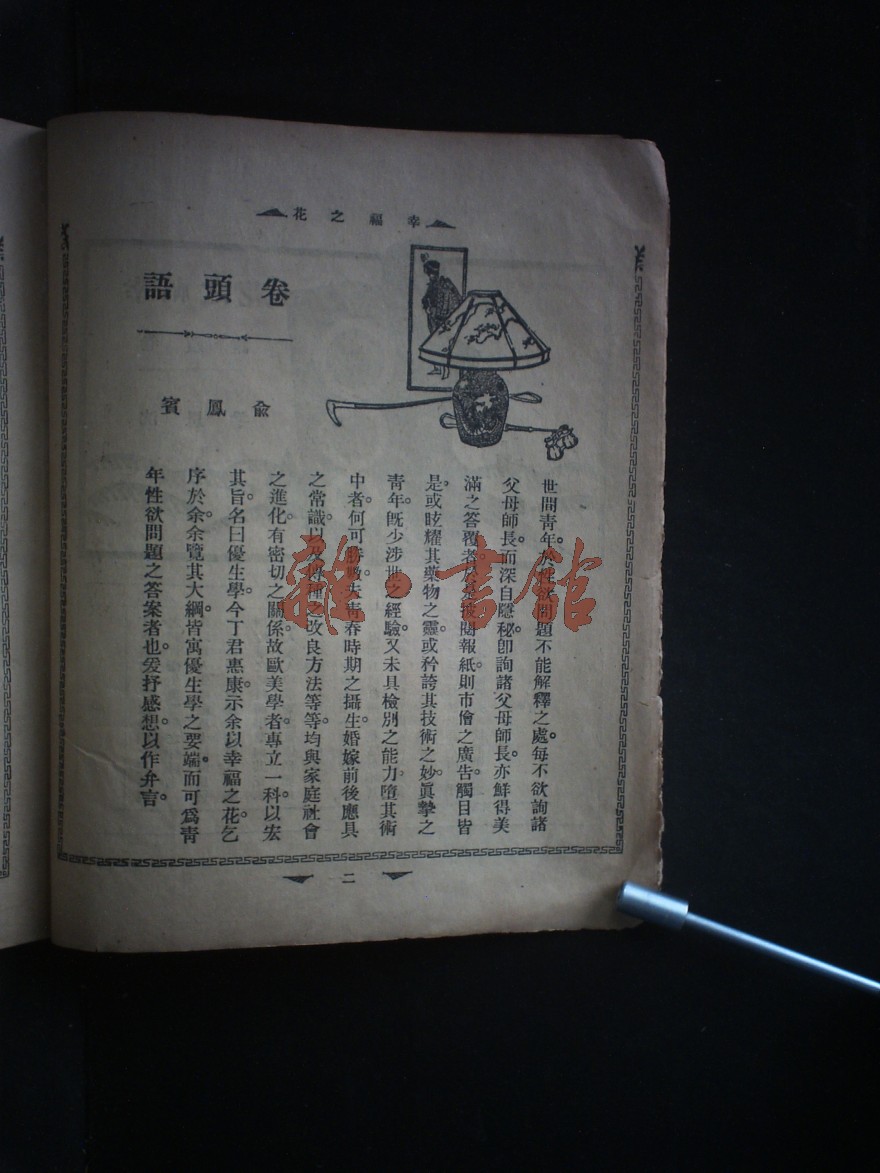 幸福之花
卷頭語
俞鳳賓
世間青年。於性欲問題不能解釋之處。每不欲詢諸
父母師長。而深自隱秘。卽詢諸父母師長。亦鮮得美
滿之答覆者。於是披閱報紙。則市儈之廣告。觸目皆
是。或眩耀其藥物之靈。或矜誇其技術之妙。眞摯之
靑年。旣少涉世之經驗。又未具檢別之能力。墮其術
中者。何可勝數。夫靑春時期之攝生。婚嫁前後應具
之常識。以及傳種之改良方法等等。均與家庭社會
之進化。有密切之關係。故歐美學者。專立一科。以宏
其旨。名曰優生學。今丁君惠康。示余以幸福之花。乞
序於余。余覽其大綱。皆寓優生學之要端。而可爲靑
年性欲問題之答案者也。爰抒感想。以作弁言。
二
雜·書館